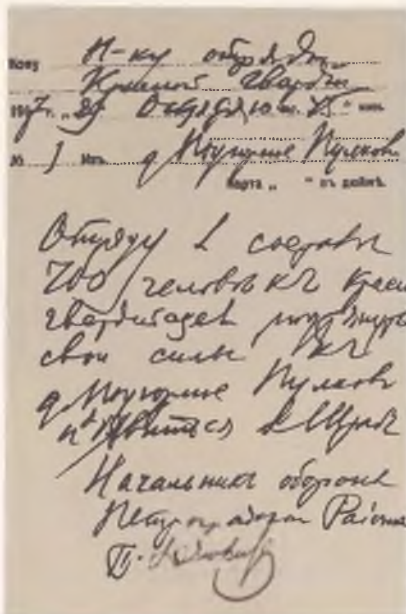 Кому Н-ку отряда
Красной Гвардіи
1917 г. „ 29 Октября ч. 15 “ мин.
№ 1 Изъ д Подгорное Пулково
Карта „ “ въ дюймѣ.
Отряду в составѣ
700 человѣкъ
подтянуть
свои силы къ
д Подгорное Пулково
и явиться в Штабъ
Начальникъ обороны
Петроградскаго Района